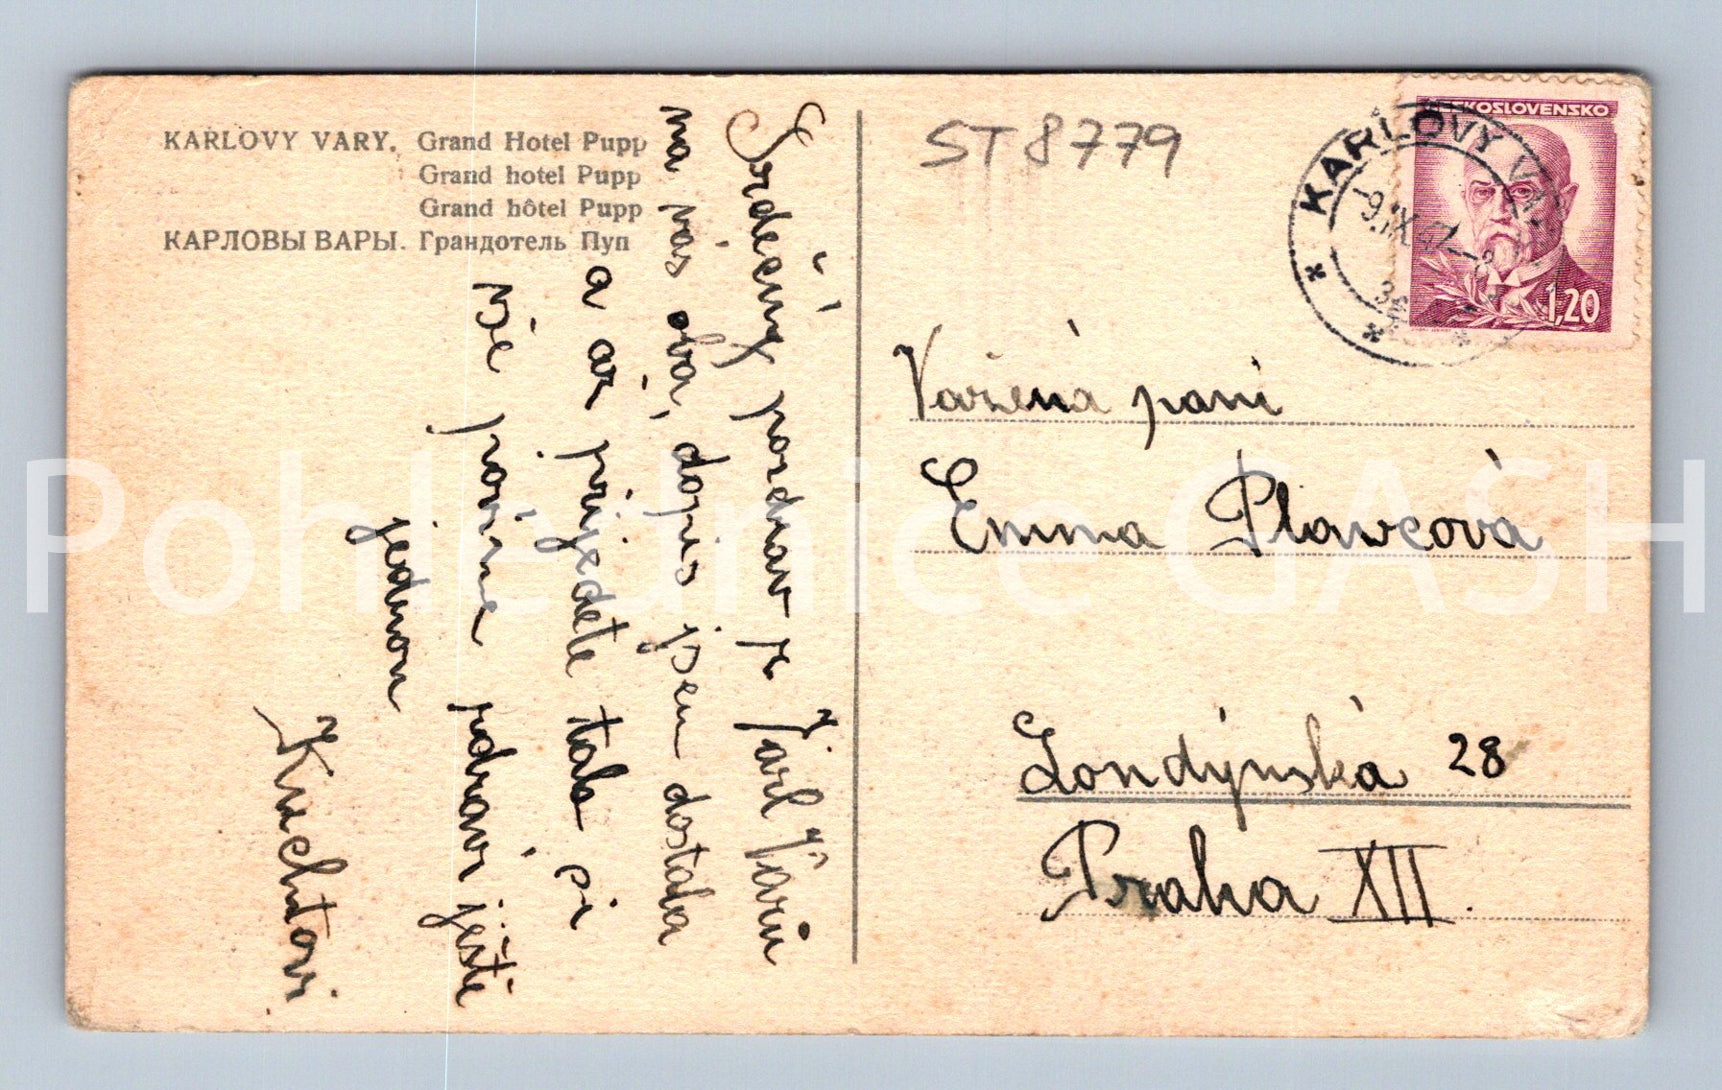 KARLOVY VARY. Grand Hotel Pupp
Grand hotel Pupp
Grand hôtel Pupp
КАРЛОВЫ ВАРЫ. Грандотель Пуп
Srdečný pozdrav z Karl Varů
na vás oba, dopis jsem dostala
a až přijedete tak si
vše povíme zdraví ještě
jednou
Kuchtovi
ST 8779
ČESKOSLOVENSKO
1,20
KARLOVY VARY
9.IX.47
Vážená paní
Emma Plavcová
Londýnská 28
Praha XII.
Pohlednice CASH